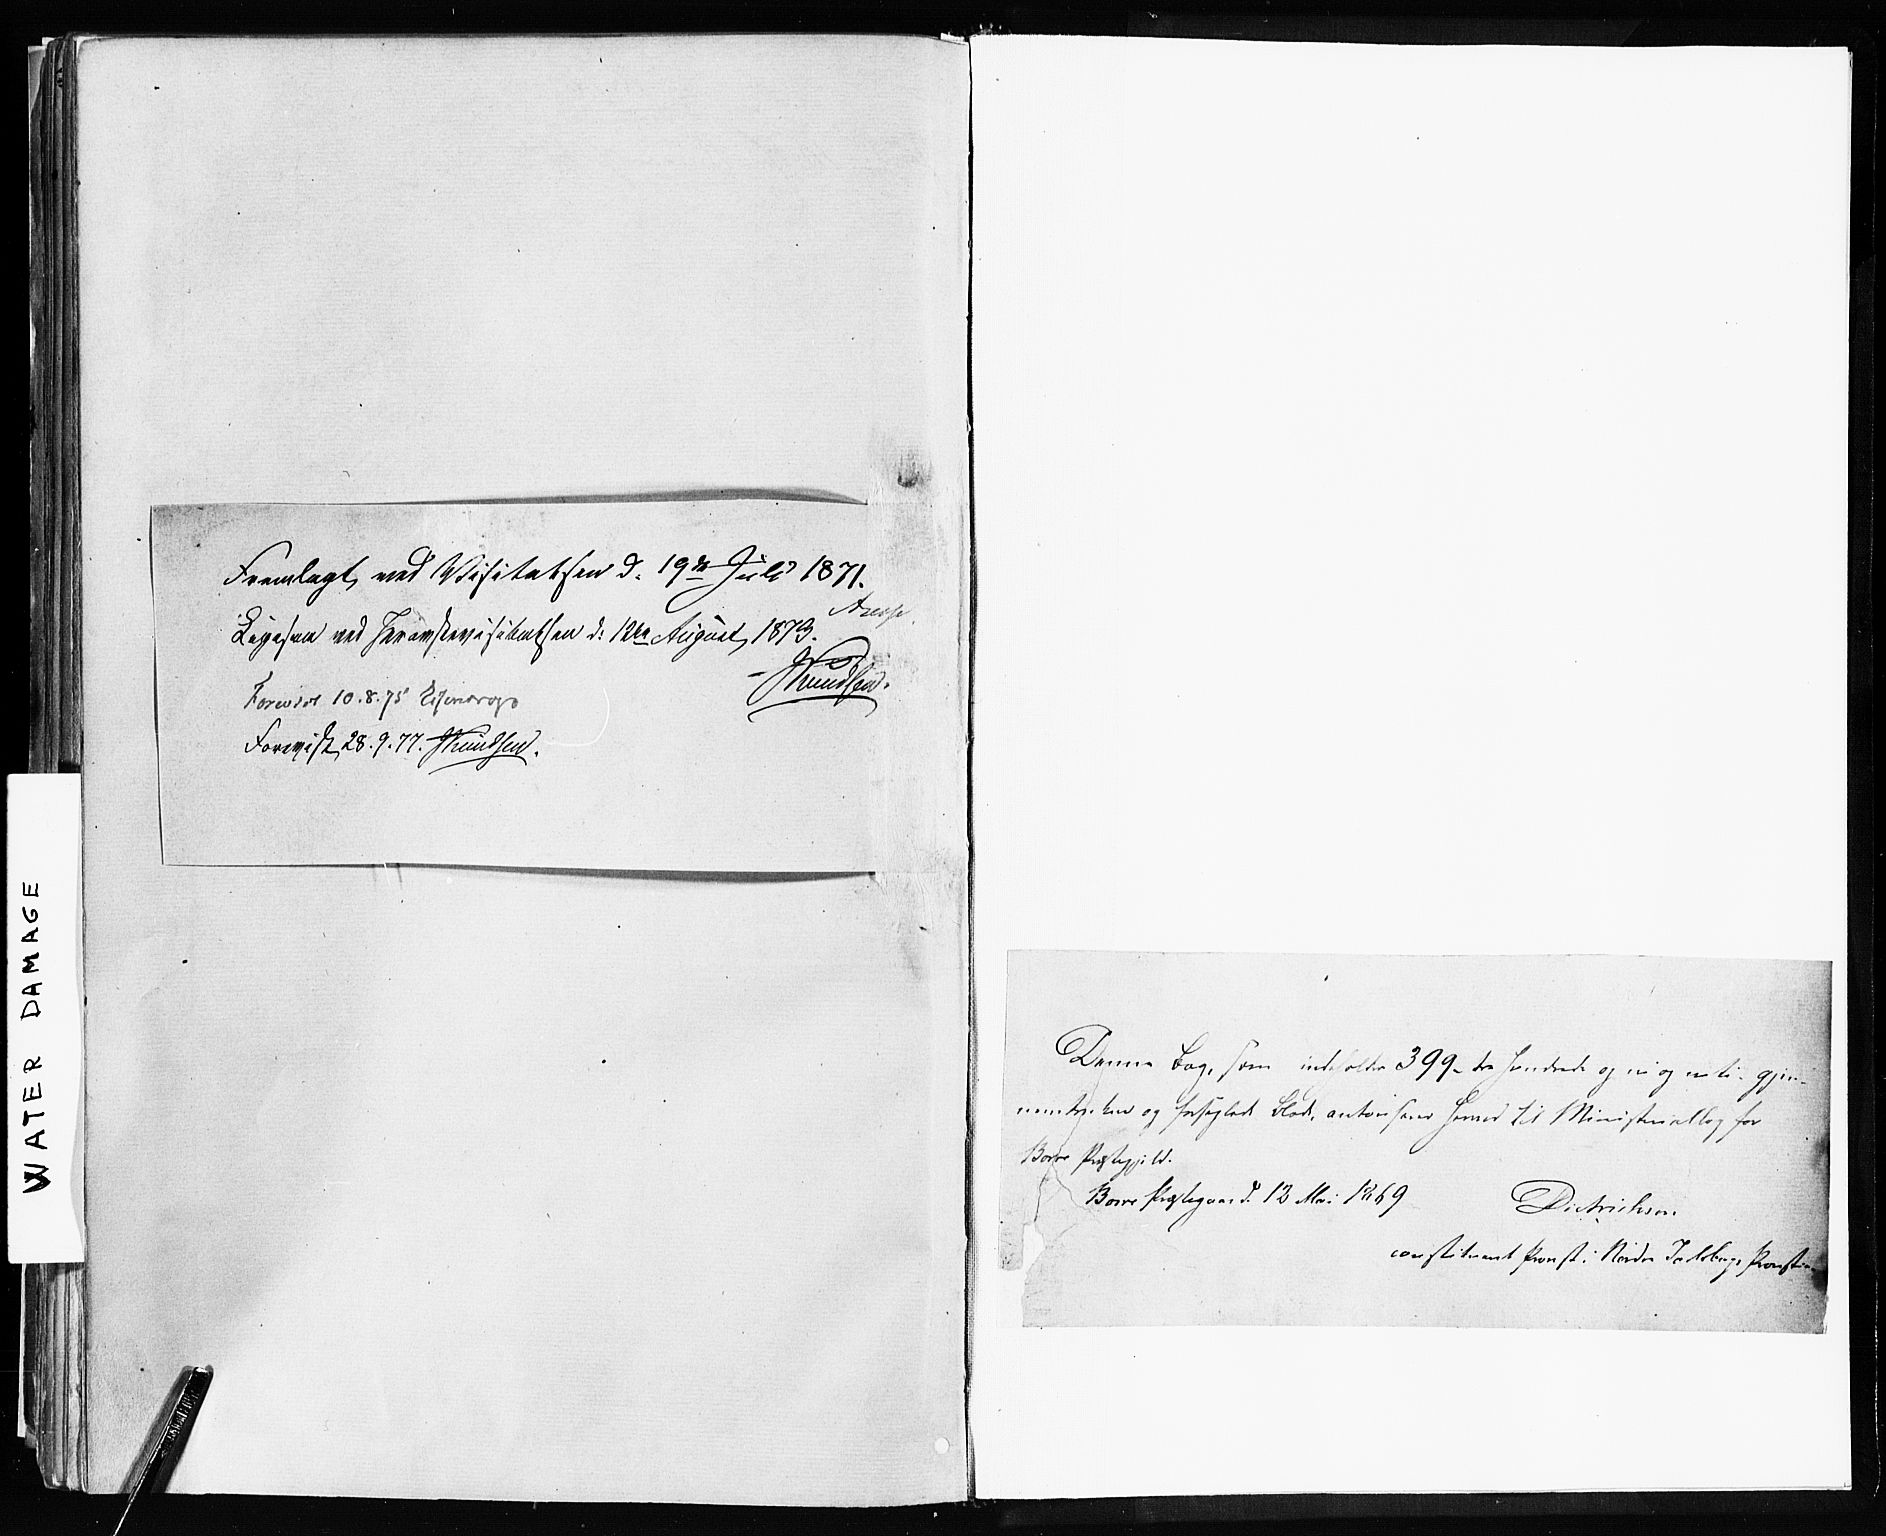 WATER DAMAGE
Fremlagt ved Visitatsen d. 19de Juli 1871.
Arup.
Ligesaa ved Provstevisitatsen d: 12te August 1873.
JKnudsen.
Forevist 10.8.75
Forevist 28.9.77. JKnudsen.
Denne Bog, som indeholder 399 - tre Hundrede og ni og niti - gjen-
nemtrukne og forseglede Blade, autoriseres herved til Ministerialbog for
Borre Præstegjeld.
Borre Præstegaard d. 12 Mai 1869
Dietrichson
constitueret Provst i Nordre Jarlsbergs Provsti